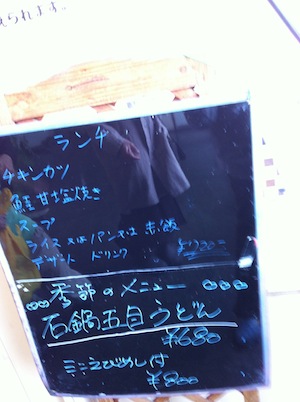 えられます。
ランチ
チキンカツ
鮭甘塩焼き
スープ
ライス又はパン又は赤飯
デザート ドリンク
季節のメニュー
石鍋五目うどん
¥680
ミニえびめし付
¥800